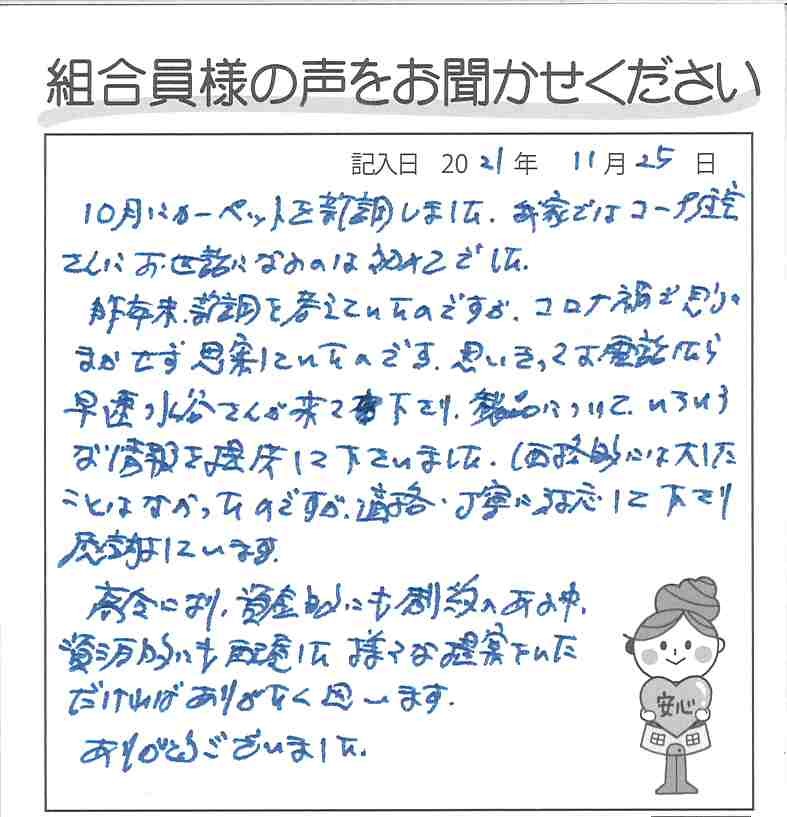 組合員様の声をお聞かせください
記入日 2021年 11月25日
10月にカーペットを新調しました。我家ではコープ住宅
さんにお世話になるのは初めてでした。
昨年来、新調を考えていたのですが、コロナ禍で思うに
まかせず思案していたのです。思いきってお電話したら
早速水谷さんが来て下さり、製品について、いろいろ
な情報を提供して下さいました。(価格的には大した
ことはなかったのですが、)適格・丁寧に対応して下さり
感謝しています。
高令になり、資金的にも制約のある中、
資源的にも配慮した様々な提案をいた
だければありがたく思います。
ありがとうございました。
安心